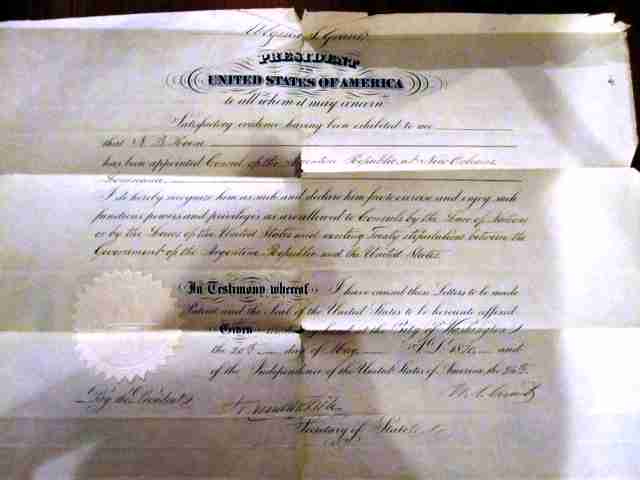 Ulysses S. Grant
PRESIDENT
UNITED STATES OF AMERICA
to all whom it may concern
Satisfactory evidence having been exhibited to me
that
has been appointed Consul of the Argentine Republic, at New Orleans
Louisiana
I do hereby recognise him as such and declare him free to exercise and enjoy such
functions powers and privileges as are allowed to Consuls by the Law of Nations
or by the Laws of the United States and existing Treaty stipulations between the
Government of the Argentine Republic and the United States.
In Testimony whereof I have caused these Letters to be made
Patent and the Seal of the United States to be hereunto affixed
Given under my hand at the City of Washington
the 20th day of May A.D. 1870 and
of the Independence of the United States of America, the
By the President
U. S. Grant
Secretary of State